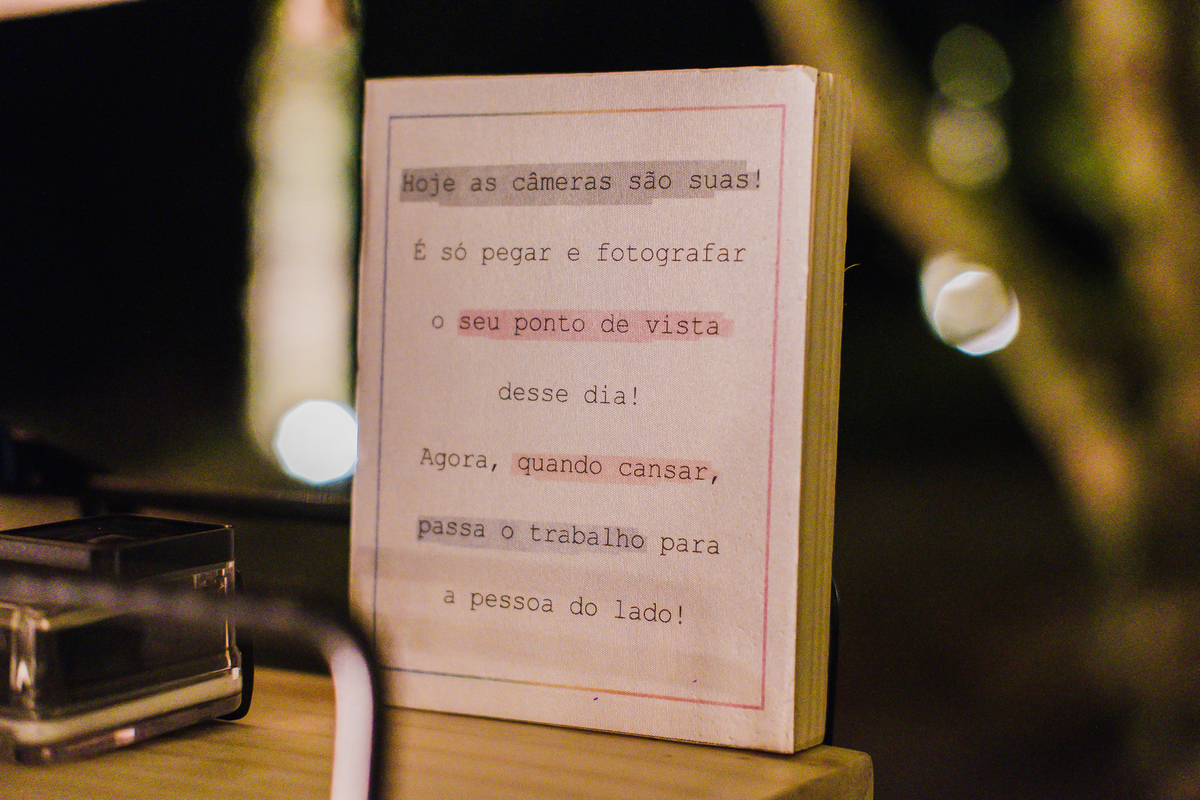 Hoje as câmeras são suas!
É só pegar e fotografar
o seu ponto de vista
desse dia!
Agora, quando cansar,
passa o trabalho para
a pessoa do lado!